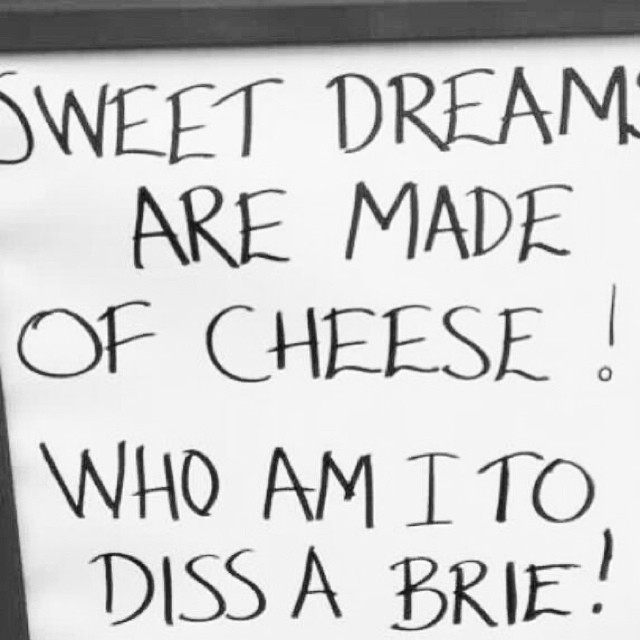 SWEET DREAMS
ARE MADE
OF CHEESE!
WHO AM I TO
DISS A BRIE!